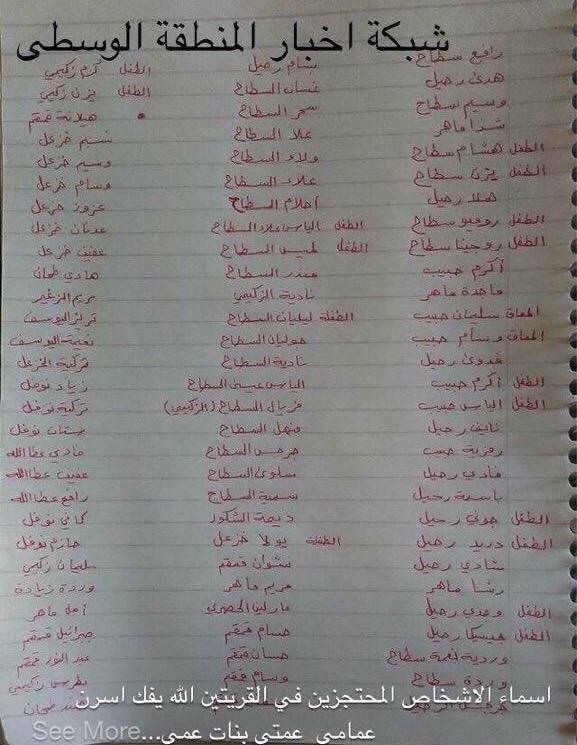 شبكة اخبار المنطقة الوسطى
رافع سطاح
هدى رحيل
وسيم سطاح
شذا ماهر
الطفل هشام سطاح
الطفل يزن سطاح
هلا رحيل
الطفل روميو سطاح
الطفل روجينا سطاح
أكرم حبيب
ماجدة ماهر
المعاق سليمان حبيب
المعاق وسام حبيب
فدوى رحيل
الطفل أكرم حبيب
الطفل الياس حبيب
نايف رحيل
رمزية حبيب
فادي رحيل
باسمة رحيل
الطفل جوني رحيل
الطفل دريد رحيل
شادي رحيل
رشا ماهر
الطفل وجدي رحيل
الطفل جيسيكا رحيل
وردية نعمة سطاح
وردة سطاح
بسام رحيل
غسان السطاح
سمر السطاح
علا السطاح
ولاء السطاح
علاء السطاح
أحلام السطاح
الطفل الياس علاء السطاح
الطفل لميس السطاح
منذر السطاح
نادية الزكيمي
الطفلة ليليان السطاح
جوليان السطاح
نادية السطاح
الياس عيسى السطاح
فريال السطاح (الزكيمي)
منهل السطاح
جرجس السطاح
سلوى السطاح
سمية السطاح
ديمة الشكور
الطفلة يولا خزعل
نشوان قمقم
مريم ماهر
مارلين الحصري
حسام قمقم
حسان قمقم
وسام قمقم
الطفل كرم زكيمي
الطفل يزن زكيمي
هيلانة قمقم
نسيم خزعل
وسيم خزعل
وسام خزعل
عزوز خزعل
عدنان خزعل
عفيف خزعل
هادي طحان
مريم الزغير
تريز اليوسف
نعيمة اليوسف
تركية الخزعل
زياد نوفل
تركية نوفل
نوفل
فادي عطاالله
عفيف عطاالله
رافع عطاالله
كافي نوفل
حازم نوفل
سليمان زكيمي
وردة زيادة
أمل ماهر
جبرائيل قمقم
عبد النور قمقم
بطرس زكيمي
طحان
اسماء الاشخاص المحتجزين في القريتين الله يفك اسرن
عمامي عمتي بنات عمي...See More